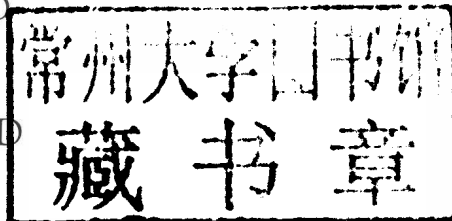 常州大学图书馆
藏书章
D